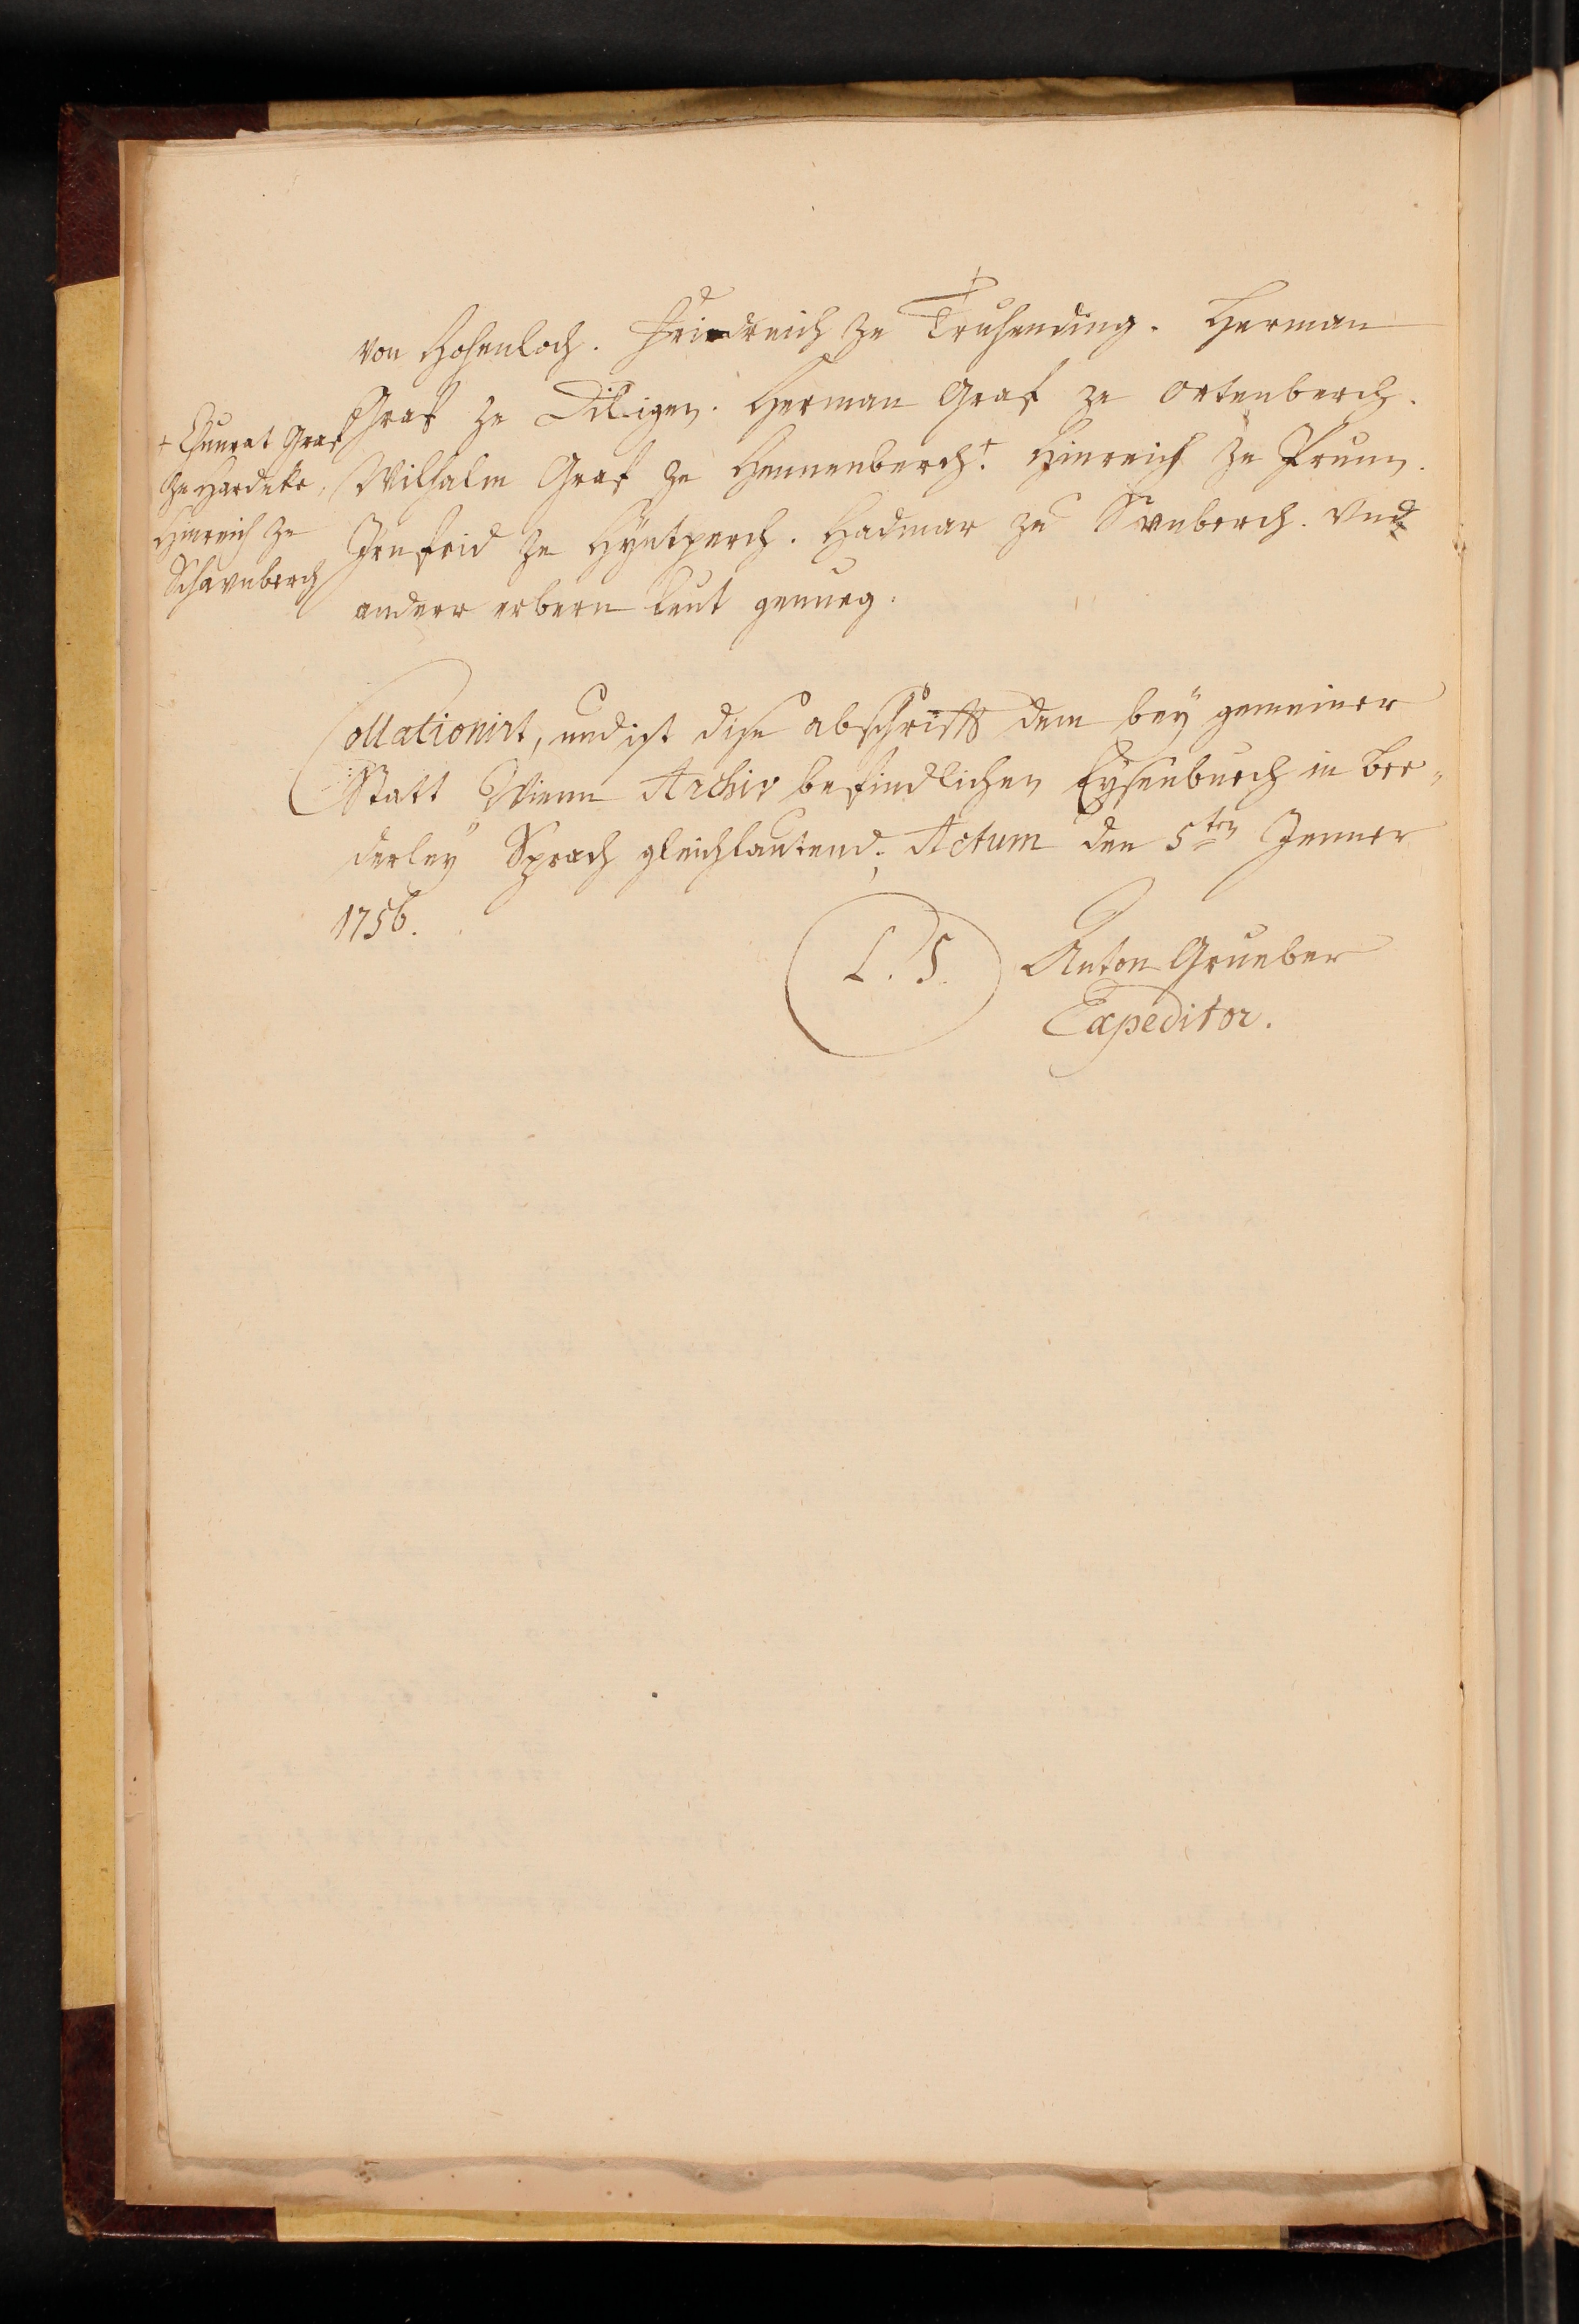 von Hohenloch. Fridreich ze Truhending. Herman
Graf ze Diligen. Herman Graf ze Ortenberch.
Wilhalm Graf ze Hennenberch. + Hinreich ze Prunn.
Irnfrid ze Hÿntperch. Hadmar ze Svnberch. Vnd
anderr erbern leut genueg.
+ Chunrat Graf
ze Hardekk,
Hinreich ze
Schavnberch
Collationirt, und ist dise abschrifft dem beÿ gemeiner
Statt Wienn Archiv befindlichen Eysenbuech in bee„
derleÿ Sprach gleichlautend. Actum den 5ten Jenner
1756.
L. S. Anton Grueber
Expeditor.